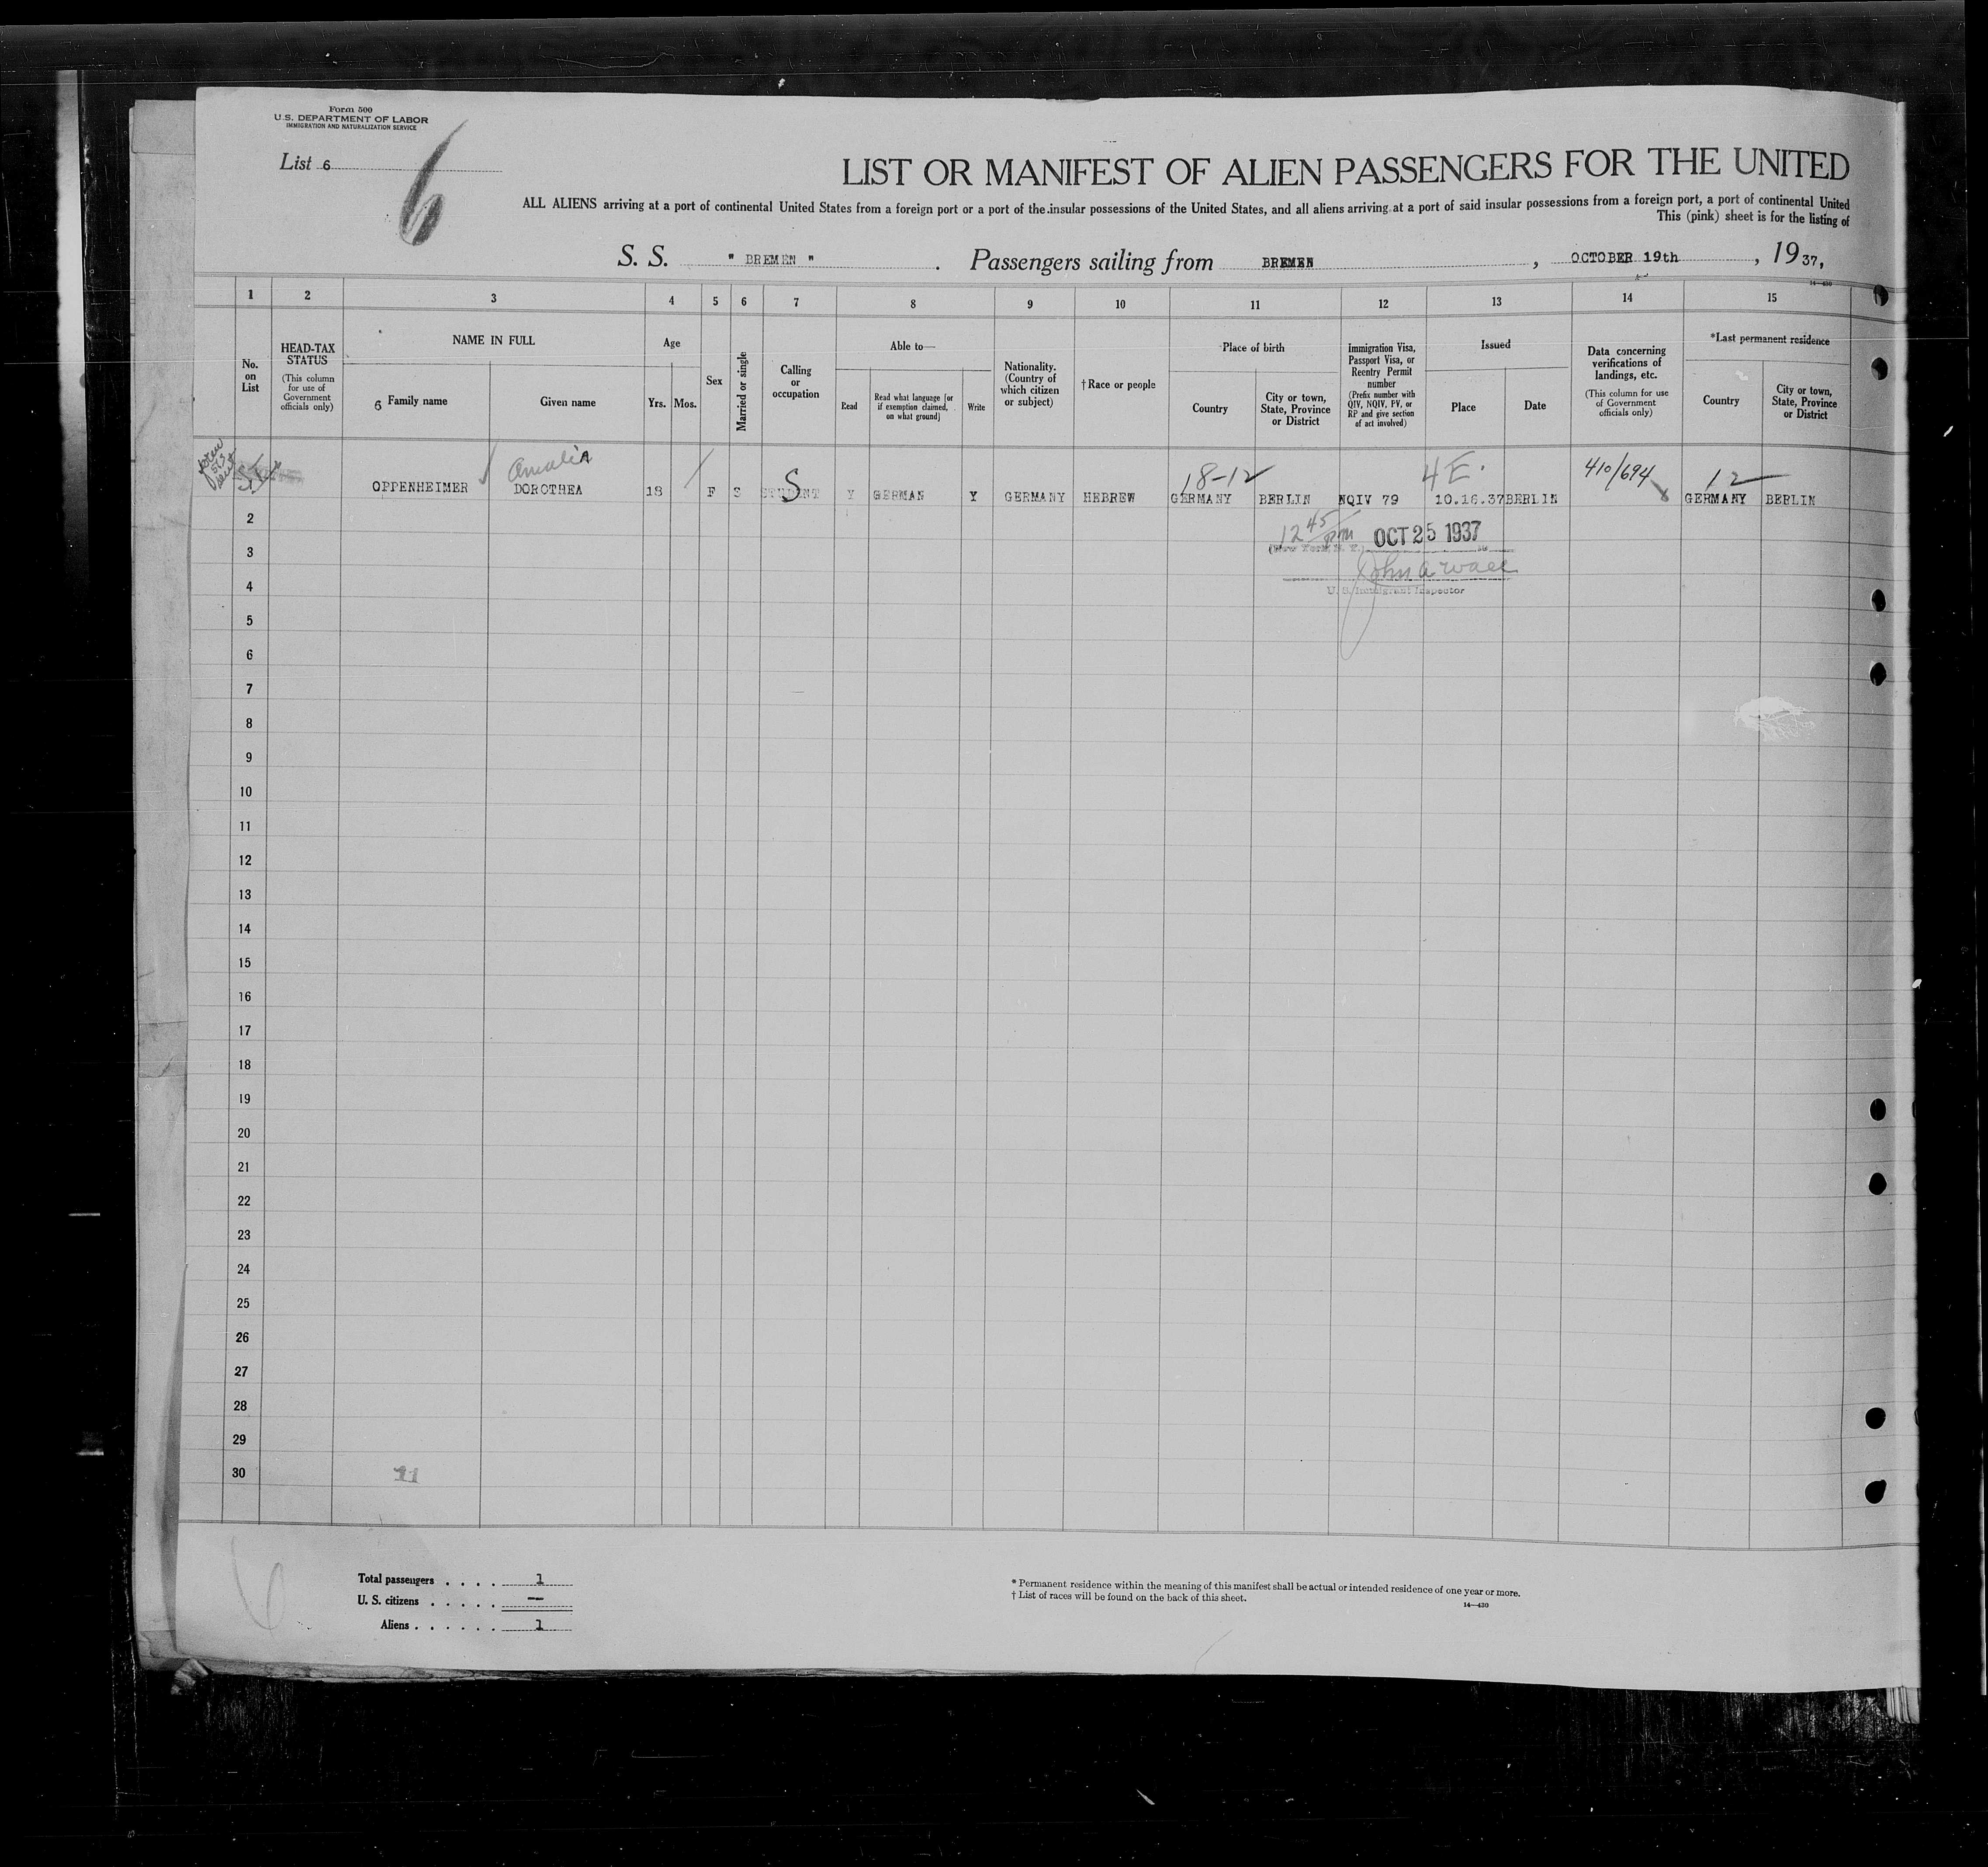 Form 500
U.S. DEPARTMENT OF LABOR
IMMIGRATION AND NATURALIZATION SERVICE
List 6
6
LIST OR MANIFEST OF ALIEN PASSENGERS FOR THE UNITED
ALL ALIENS arriving at a port of continental United States from a foreign port or a port of the insular possessions of the United States, and all aliens arriving at a port of said insular possessions from a foreign port, a port of continental United
This (pink) sheet is for the listing of
S. S. " BREMEN " . Passengers sailing from BREMEN , OCTOBER 19th , 1937,
14—430
1 2 3 4 5 6 7 8 9 10 11 12 13 14 15
No. on List
HEAD-TAX STATUS
(This column for use of Government officials only)
NAME IN FULL
6 Family name
Given name
Age
Yrs.
Mos.
Sex
Married or single
Calling or occupation
Able to—
Read
Read what language [or if exemption claimed, on what ground]
Write
Nationality. (Country of which citizen or subject)
†Race or people
Place of birth
Country
City or town, State, Province or District
Immigration Visa, Passport Visa, or Reentry Permit number
(Prefix number with QIV, NQIV, PV, or RP and give section of act involved)
Issued
Place
Date
Data concerning verifications of landings, etc.
(This column for use of Government officials only)
*Last permanent residence
Country
City or town, State, Province or District
Amalia 18-12 4E. 410/694 12
OPPENHEIMER DOROTHEA 18 F S STUDENT S Y GERMAN Y GERMANY HEBREW GERMANY BERLIN NQIV 79 10.16.37 BERLIN GERMANY BERLIN
2
12 45 pm OCT 25 1937
(New York, N. Y.)
3
John A Wall
4
U. S. Immigrant Inspector
5
6
7
8
9
10
11
12
13
14
15
16
17
18
19
20
21
22
23
24
25
26
27
28
29
30
11
6
Total passengers . . . . 1
U. S. citizens . . . . . —
Aliens . . . . . . 1
* Permanent residence within the meaning of this manifest shall be actual or intended residence of one year or more.
† List of races will be found on the back of this sheet.
14—430